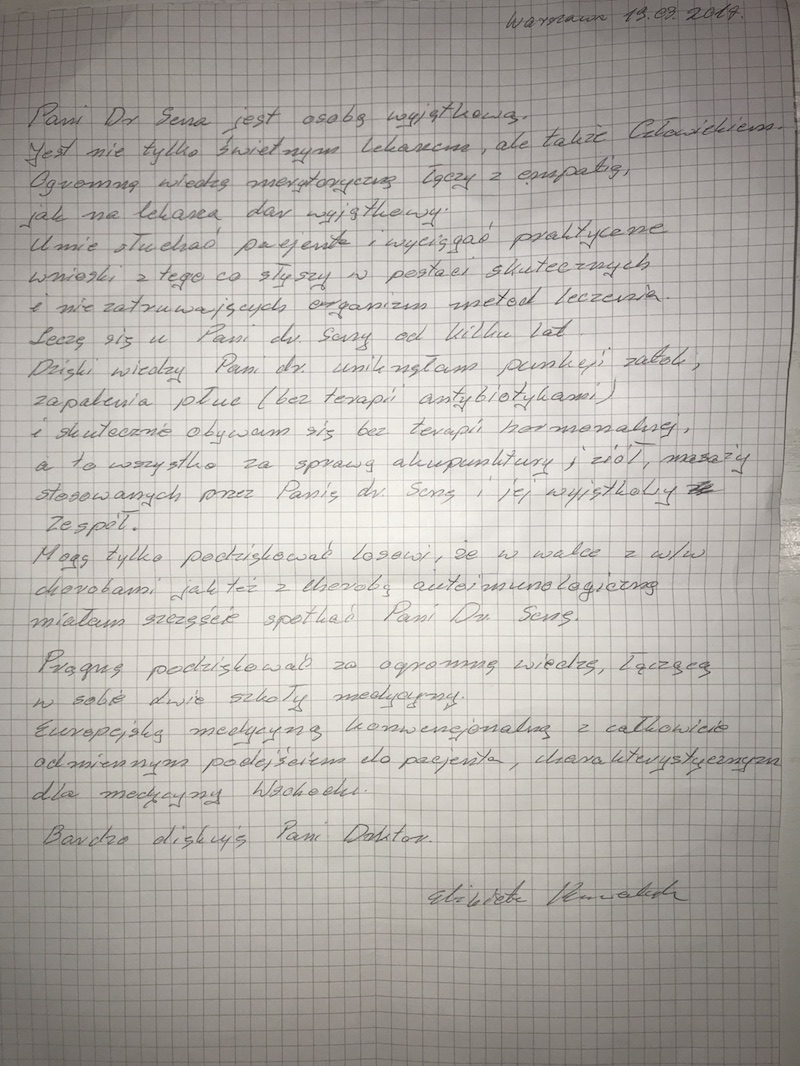 Warszawa 19.09.2017.
Pani Dr Sena jest osobą wyjątkową.
Jest nie tylko świetnym lekarzem, ale także Człowiekiem.
Ogromną wiedzę merytoryczną łączy z empatią,
jak na lekarza dar wyjątkowy.
Umie słuchać pacjenta i wyciągać praktyczne
wnioski z tego co słyszy w postaci skutecznych
i nie zatruwających organizm metod leczenia.
Leczę się u Pani dr. Seny od kilku lat
Dzięki wiedzy Pani dr. uniknęłam punkcji zatok,
zapalenia płuc (bez terapii antybiotykami)
i skutecznie obywam się bez terapii hormonalnej,
a to wszystko za sprawą akupunktury, ziół, masaży
stosowanych przez Panią dr. Senę i jej wyjątkowy
Zespół.
Mogę tylko podziękować losowi, że w walce z w/w
chorobami jak też z chorobą autoimunologiczną
miałam szczęście spotkać Pani Dr. Senę.
Pragnę podziękować za ogromną wiedzę, łączącą
w sobie dwie szkoły medycyny.
Europejską medycynę konwencjonalną z całkowicie
odmiennym podejściem do pacjenta, charakterystycznym
dla medycyny Wschodu.
Bardzo dziękuję Pani Doktor.
Elżbieta